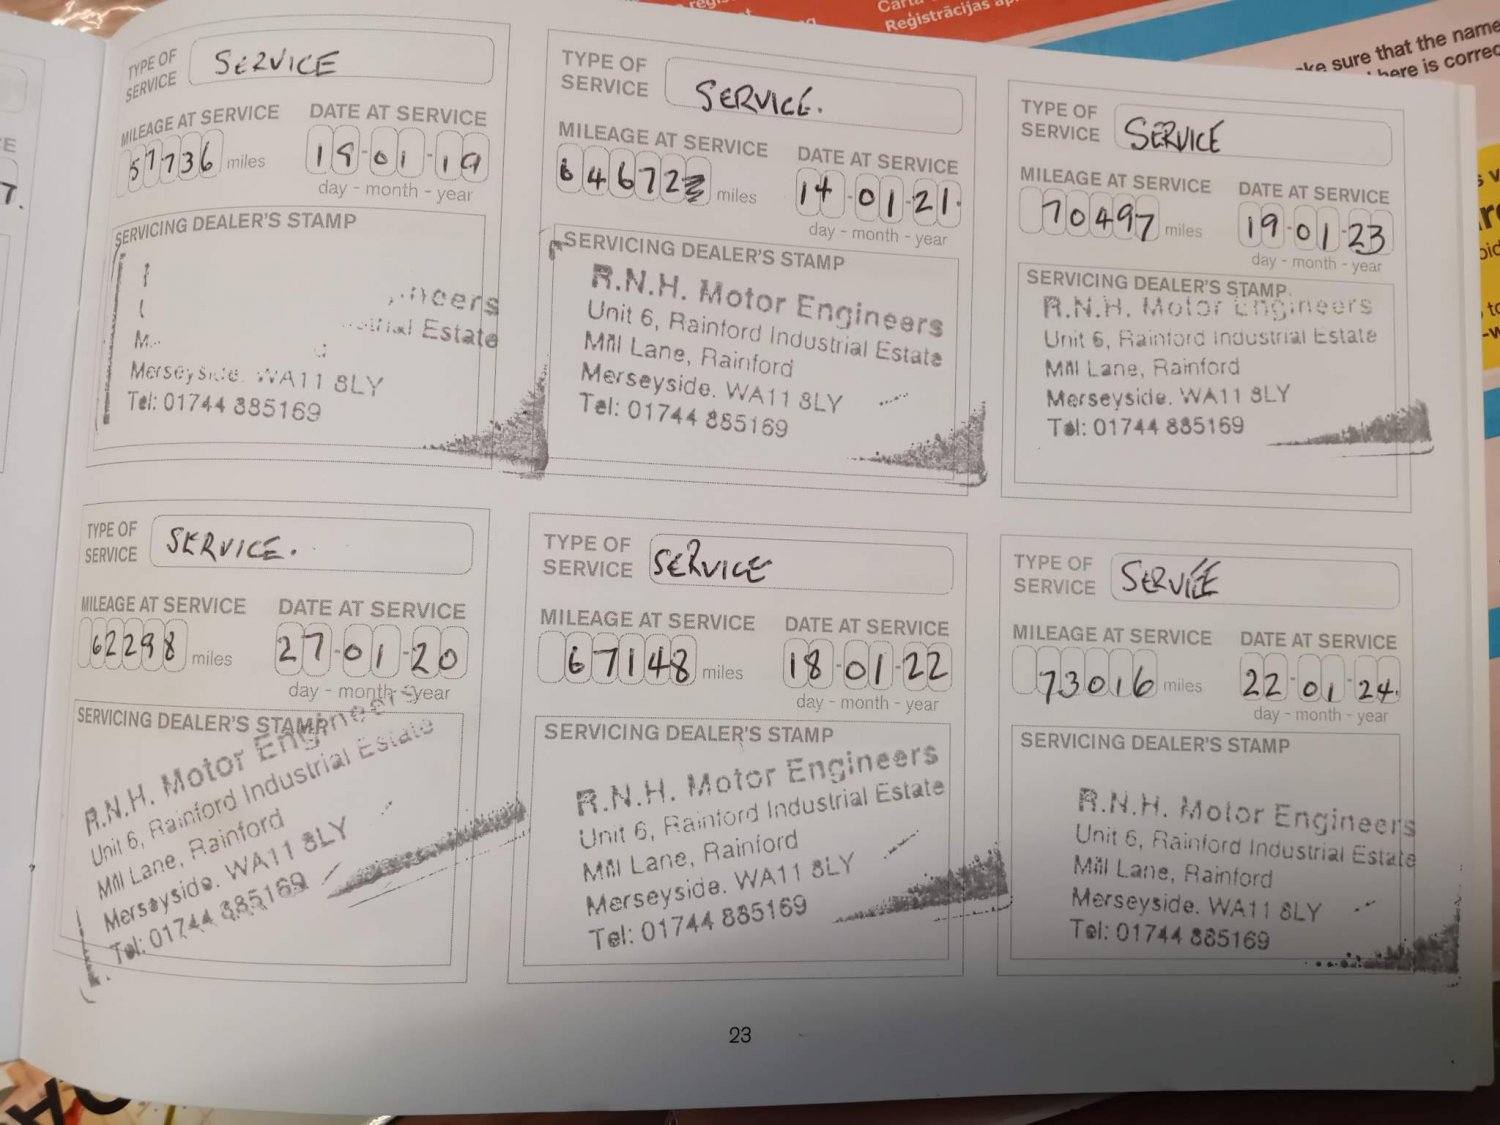 Reģistrācijas
sure that the name
here is correc
TYPE OF SERVICE SERVICE
MILEAGE AT SERVICE DATE AT SERVICE
57736 miles 18-01-19
day - month - year
SERVICING DEALER'S STAMP
Estate
Merseyside. WA11 8LY
Tel: 01744 885169
TYPE OF SERVICE SERVICE.
MILEAGE AT SERVICE DATE AT SERVICE
64672 miles 14-01-21.
day - month - year
SERVICING DEALER'S STAMP
R.N.H. Motor Engineers
Unit 6, Rainford Industrial Estate
Mill Lane, Rainford
Merseyside. WA11 8LY
Tel: 01744 885169
TYPE OF SERVICE SERVICE
MILEAGE AT SERVICE DATE AT SERVICE
70497 miles 19-01-23
day - month - year
SERVICING DEALER'S STAMP
R.N.H. Motor Engineers
Unit 6, Rainford Industrial Estate
Mill Lane, Rainford
Merseyside. WA11 8LY
Tel: 01744 885169
TYPE OF SERVICE SERVICE.
MILEAGE AT SERVICE DATE AT SERVICE
62298 miles 27-01-20
day - month - year
SERVICING DEALER'S STAMP
R.N.H. Motor Engineers
Unit 6, Rainford Industrial Estate
Mill Lane, Rainford
Merseyside. WA11 8LY
Tel: 01744 885169
TYPE OF SERVICE SERVICE
MILEAGE AT SERVICE DATE AT SERVICE
67148 miles 18-01-22
day - month - year
SERVICING DEALER'S STAMP
R.N.H. Motor Engineers
Unit 6, Rainford Industrial Estate
Mill Lane, Rainford
Merseyside. WA11 8LY
Tel: 01744 885169
TYPE OF SERVICE SERVICE
MILEAGE AT SERVICE DATE AT SERVICE
73016 miles 22-01-24.
day - month - year
SERVICING DEALER'S STAMP
R.N.H. Motor Engineers
Unit 6, Rainford Industrial Estate
Mill Lane, Rainford
Merseyside. WA11 8LY
Tel: 01744 885169
23